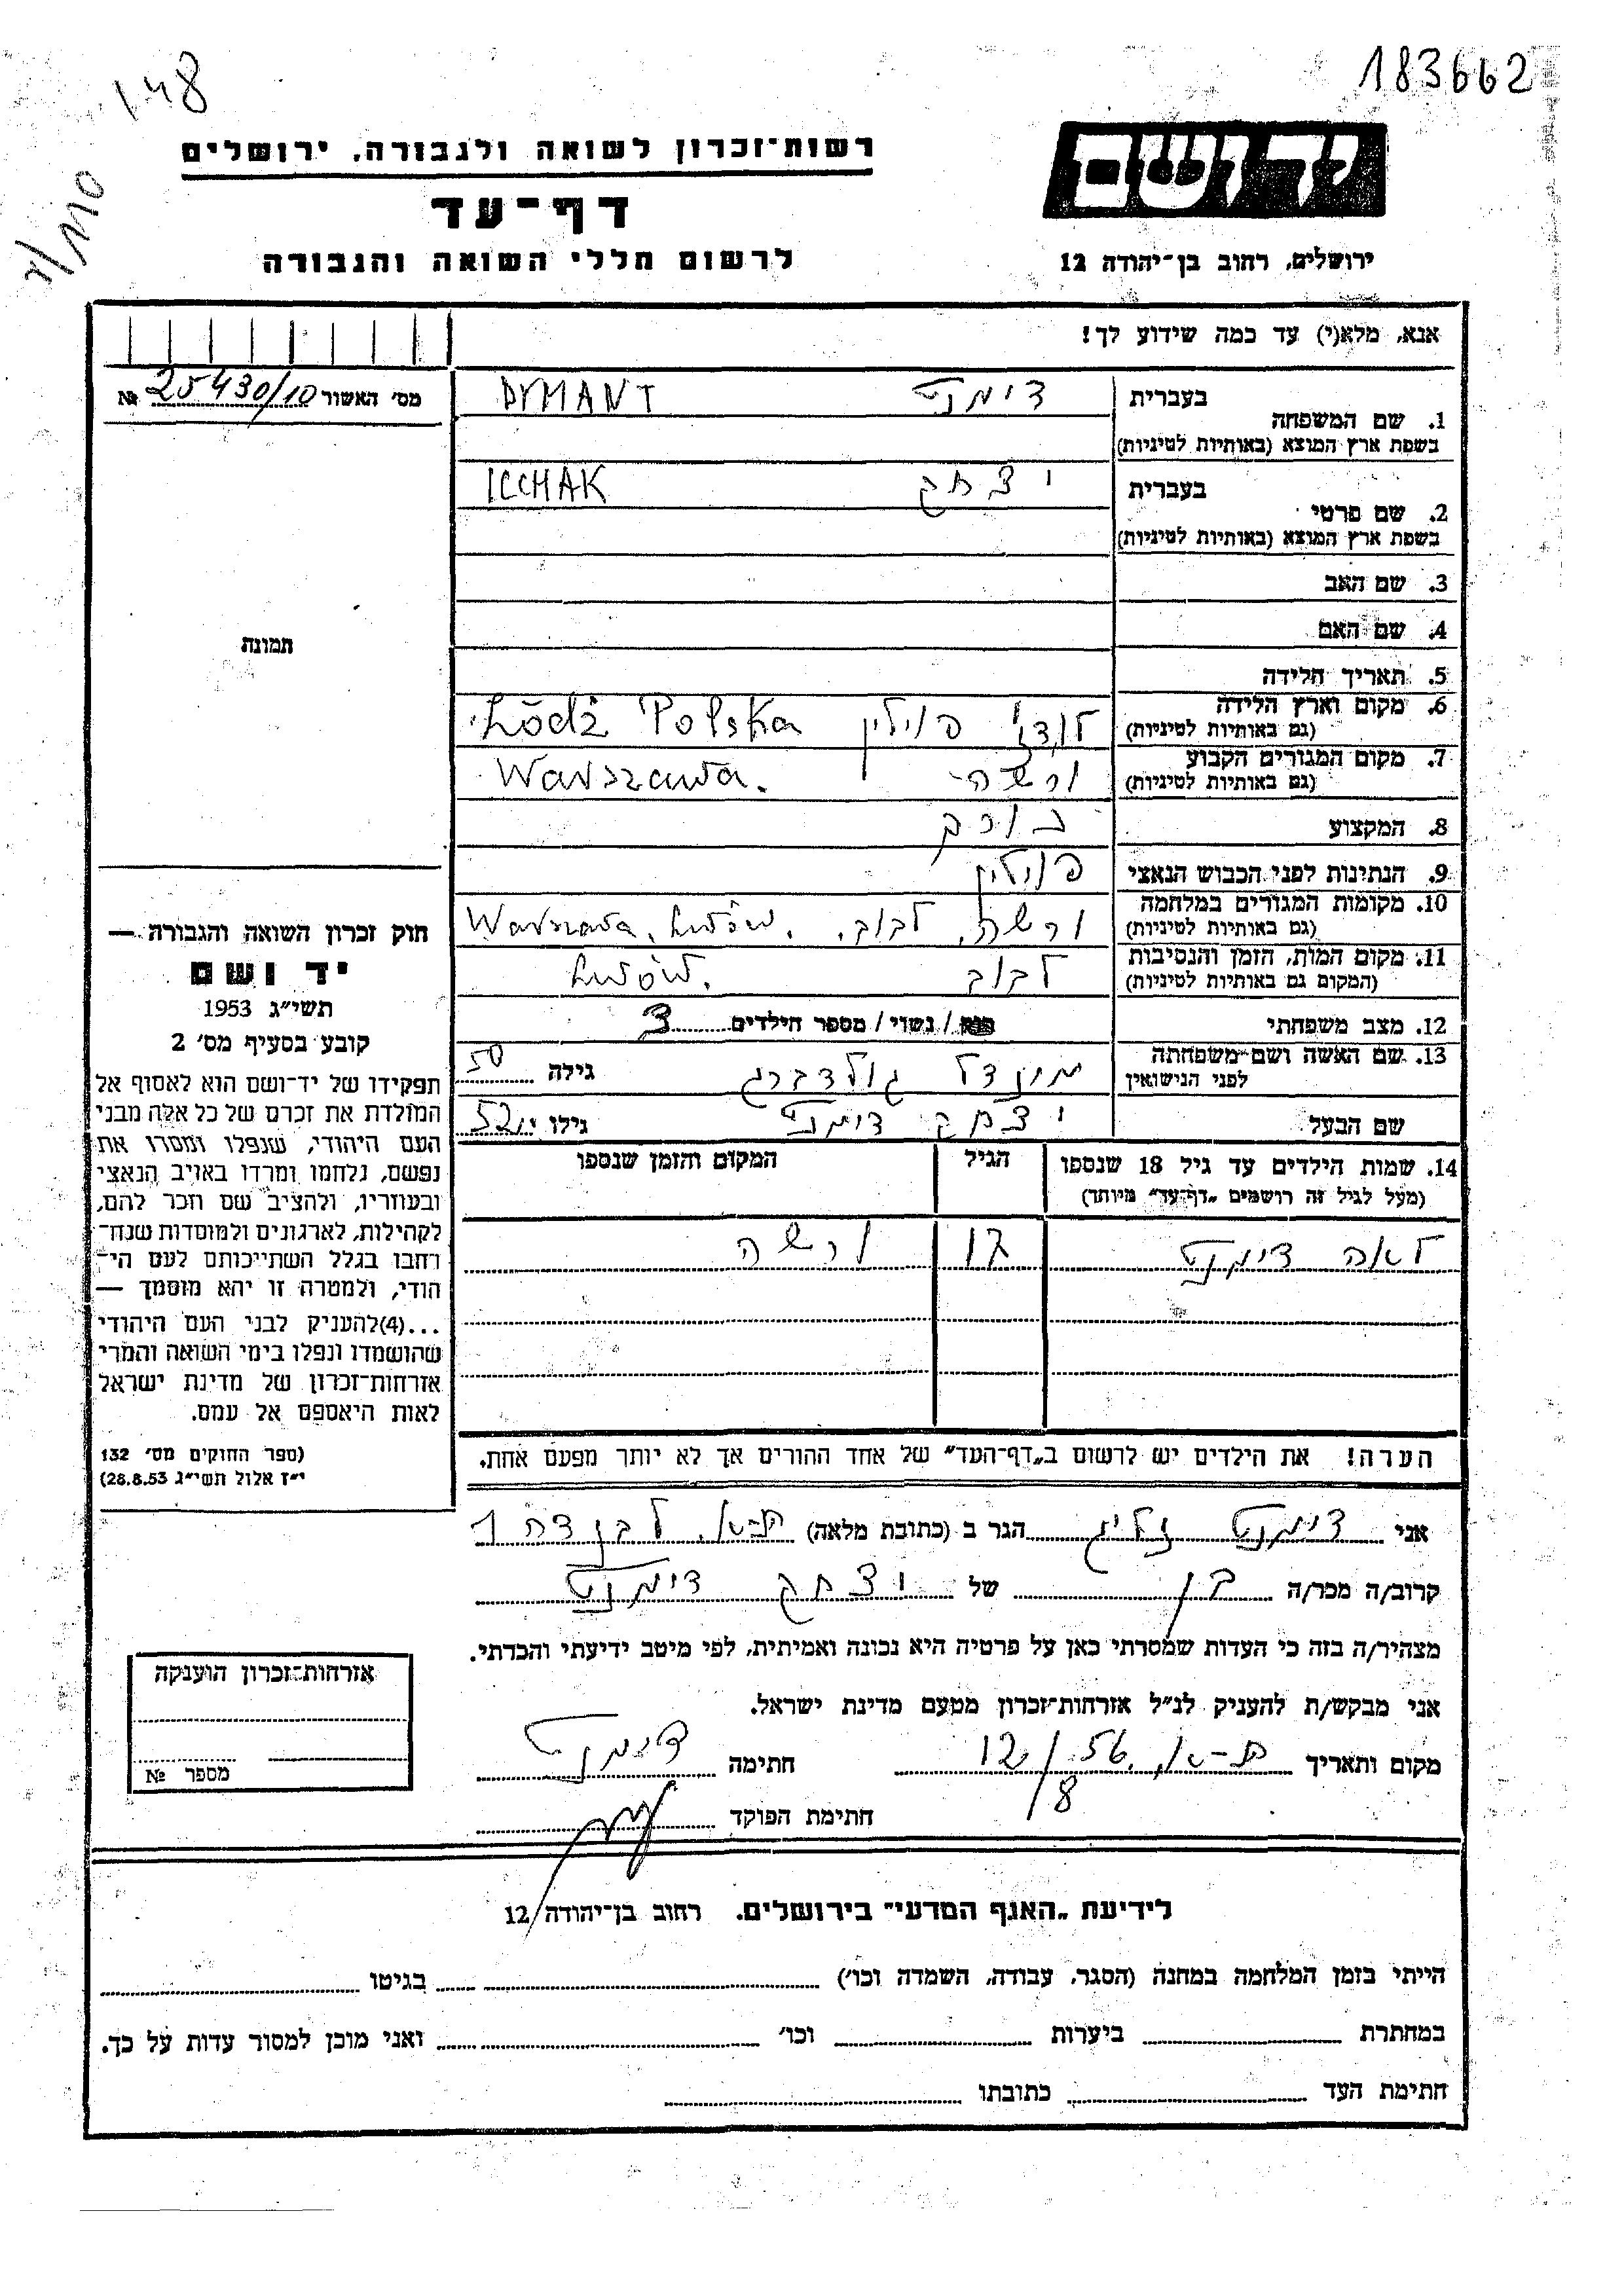 183662
148
רשות־זכרון לשואה ולגבורה, ירושלים
יד ושם
דף־עד
לרשום חללי השואה והגבורה
ירושלים, רחוב בן־יהודה 12
אנא, מלא(י) עד כמה שידוע לך!
מס׳ האשור 25430/10 №
1. שם המשפחה בעברית דימנט DYMANT
בשפת ארץ המוצא (באותיות לטיניות)
2. שם פרטי בעברית יצחק ICCHAK
בשפת ארץ המוצא (באותיות לטיניות)
3. שם האב
4. שם האם
תמונה
5. תאריך הלידה
6. מקום וארץ הלידה לודז׳ פוילין Łódź Polska
(גם באותיות לטיניות)
7. מקום המגורים הקבוע ורשה Warszawa.
(גם באותיות לטיניות)
8. המקצוע
9. הנתינות לפני הכבוש הנאצי פוילין
10. מקומות המגורים במלחמה ורשה, לבוב. Warszawa, Lwów.
(גם באותיות לטיניות)
11. מקום המות, הזמן והנסיבות לבוב Lwów.
(המקום גם באותיות לטיניות)
12. מצב משפחתי רוק / נשוי / מספר הילדים 3
13. שם האשה ושם־משפחתה מינדל גולדברג גילה 50
לפני הנישואין
שם הבעל יצחק דימנט גילו 52
14. שמות הילדים עד גיל 18 שנספו הגיל המקום והזמן שנספו
(מעל לגיל זה רושמים „דף־עד” מיוחד)
לאה דימנט 17 ורשה
הערה! את הילדים יש לרשום ב„דף־העד” של אחד ההורים אך לא יותר מפעם אחת.
חוק זכרון השואה והגבורה —
יד ושם
תשי״ג 1953
קובע בסעיף מס׳ 2
תפקידו של יד־ושם הוא לאסוף אל
המולדת את זכרם של כל אלה מבני
העם היהודי, שנפלו ומסרו את
נפשם, נלחמו ומרדו באויב הנאצי
ובעוזריו, ולהציב שם וזכר להם,
לקהילות, לארגונים ולמוסדות שנח־
רבו בגלל השתייכותם לעם הי־
הודי, ולמטרה זו יהא מוסמך —
...(4)להעניק לבני העם היהודי
שהושמדו ונפלו בימי השואה והמרי
אזרחות־זכרון של מדינת ישראל
לאות היאספם אל עמם.
(ספר החוקים מס׳ 132
י״ז אלול תשי״ג 28.8.53)
אני דימנט זליג הגר ב (כתובת מלאה) ת–א,
קרוב/ה מכר/ה בן של יצחק דימנט
מצהיר/ה בזה כי העדות שמסרתי כאן על פרטיה היא נכונה ואמיתית, לפי מיטב ידיעתי והכרתי.
אני מבקש/ת להעניק לנ״ל אזרחות־זכרון מטעם מדינת ישראל.
מקום ותאריך ת–א, 12/8 56 חתימה דימנט
חתימת הפוקד
אזרחות־זכרון הוענקה
מספר №
לידיעת „האגף המדעי” בירושלים. רחוב בן־יהודה 12
הייתי בזמן המלחמה במחנה (הסגר, עבודה, השמדה וכו׳) בגיטו
במחתרת ביערות וכו׳ ואני מוכן למסור עדות על כך.
חתימת העד כתובתו